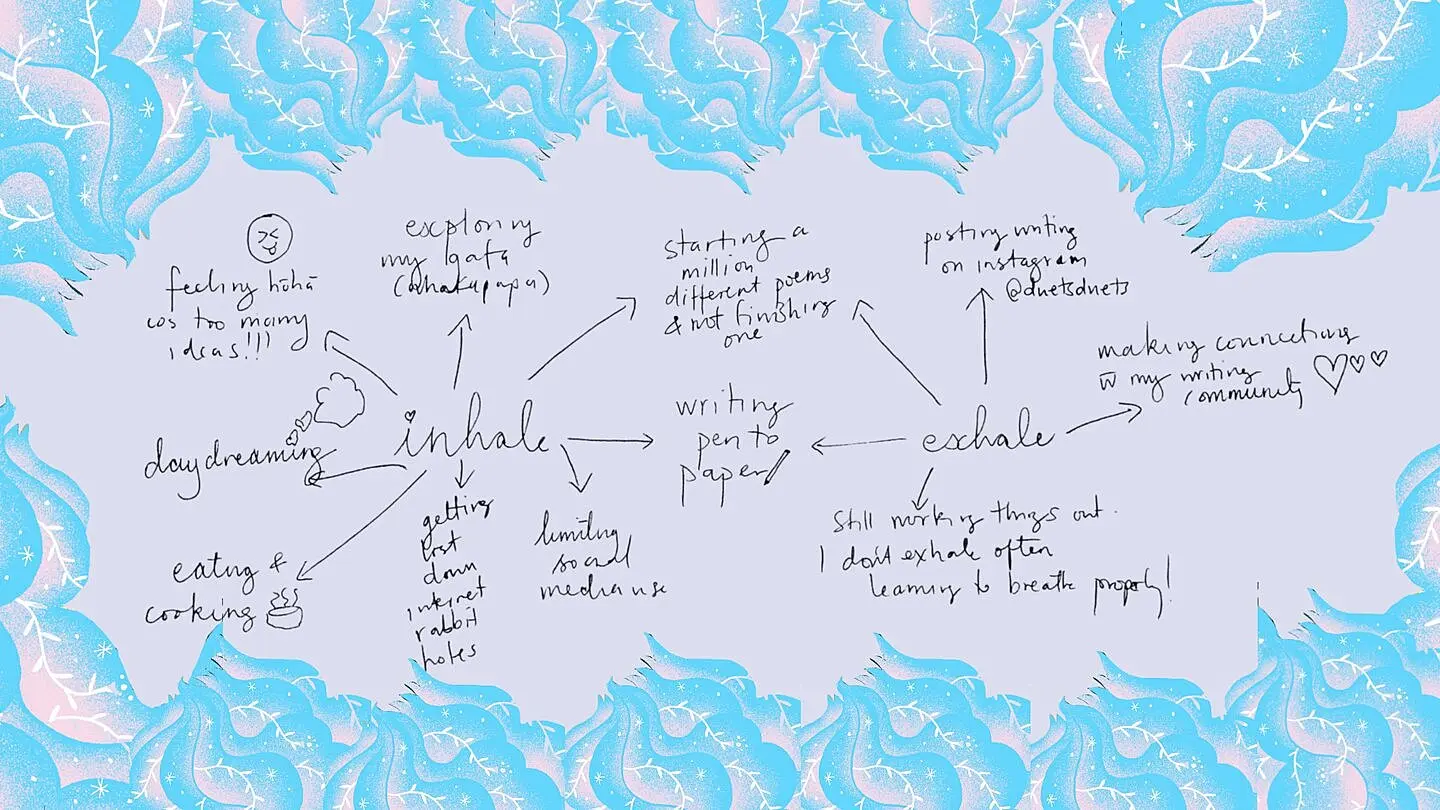 feeling hōhā
cos too many
ideas!!!
exploring
my gafa
(whakapapa)
starting a
million
different poems
& not finishing
one
posting writing
on instagram
@duetsduets
making connections
w̄ my writing
community
daydreaming
inhale
writing
pen to
paper
exhale
eating &
cooking
getting
lost
down
internet
rabbit
holes
limiting
social
media use
Still working things out.
I don't exhale often
learning to breathe properly!